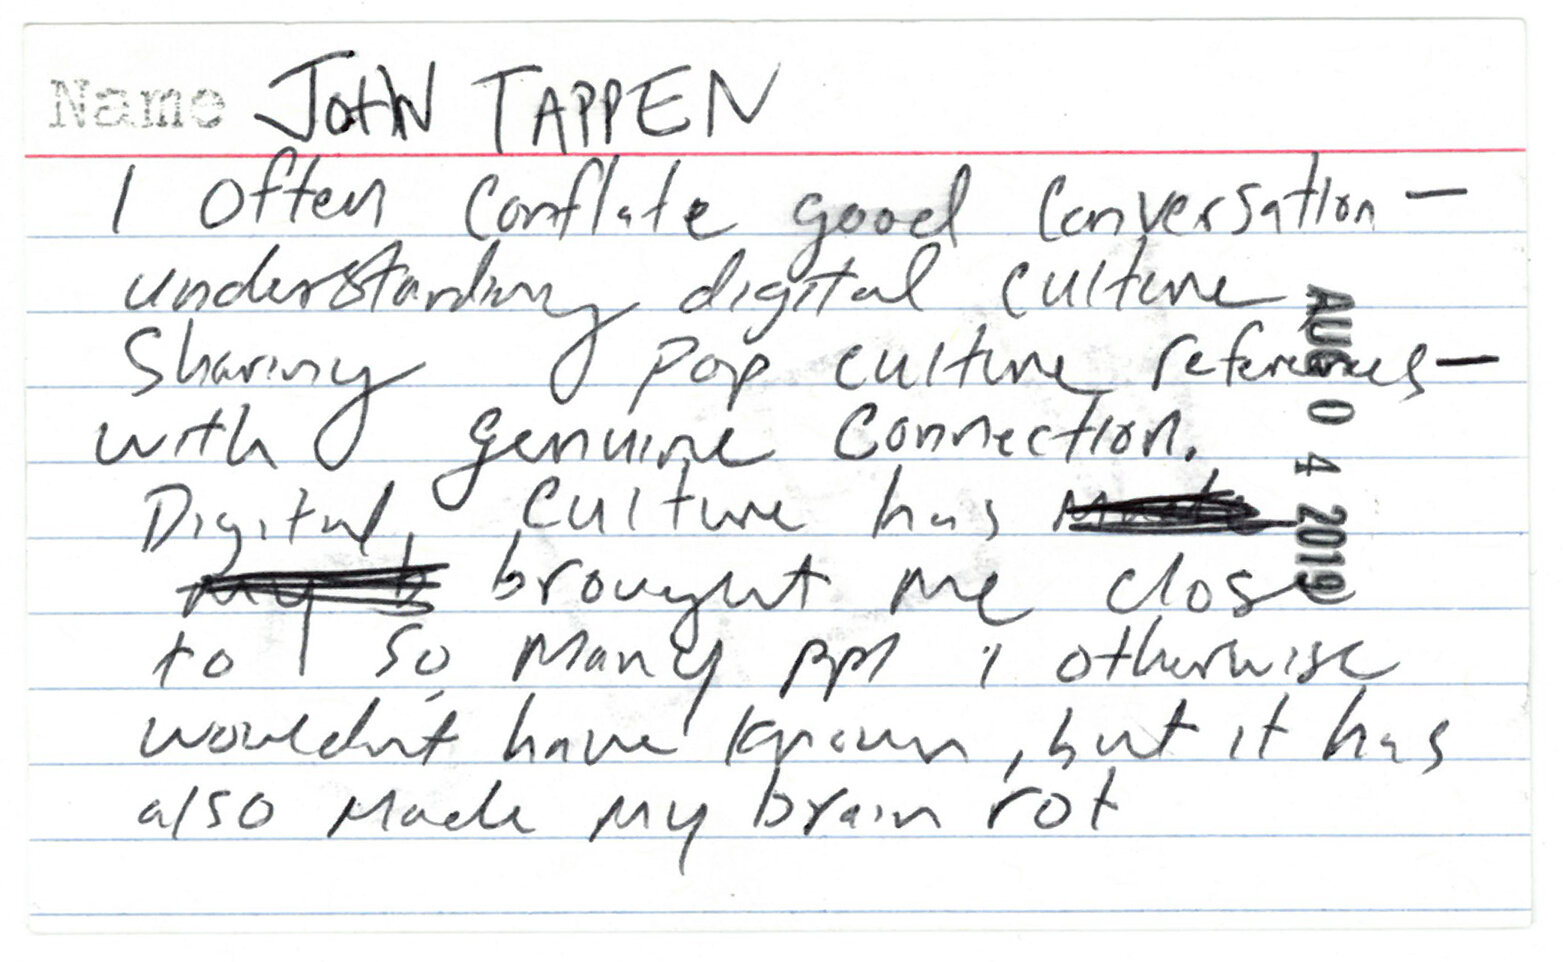 Name JOHN TAPPEN
I often conflate good conversation —
understanding digital culture
Sharing pop culture references —
with genuine connection.
Digital culture has
brought me close
to so many ppl i otherwise
wouldn't have known, but it has
also made my brain rot
AUG 04 2019